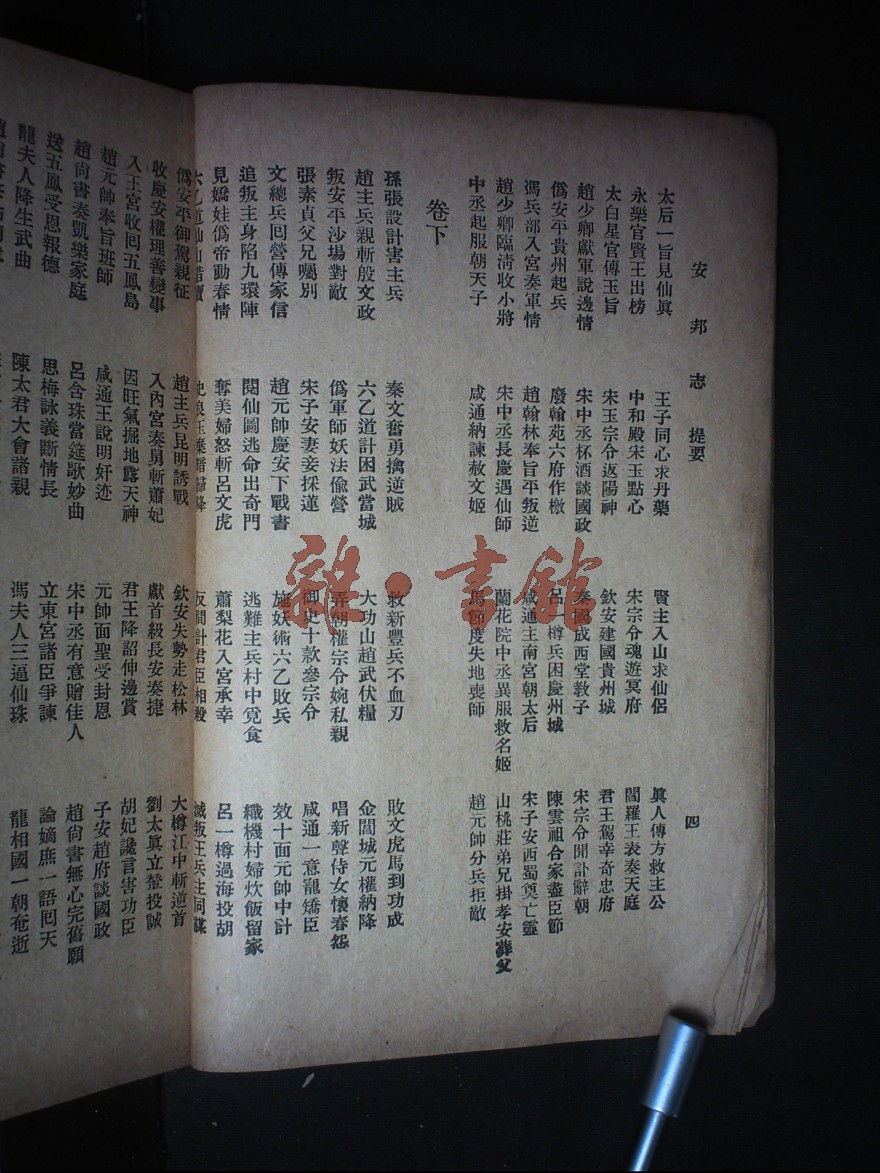 安邦志 提要 四
太后一旨見仙眞 王子同心求丹藥 賢主入山求仙侶 眞人傳方救主公
永樂官賢王出榜 中和殿宋玉點心 宋宗令魂遊冥府 閻羅王表奏天庭
太白星官傳玉旨 宋玉宗令返陽神 欽安建國貴州城 君王駕幸奇忠府
趙少卿獻軍說邊情 宋中丞杯酒談國政 秦國成西堂教子 宋宗令聞訃辭朝
僞安平貴州起兵 廢翰苑六府作檄 呂一樽兵困慶州城 陳雲祖合家盡臣節
馮兵部入宮奏軍情 趙翰林奉旨平叛逆 咸通主南宮朝太后 宋子安西蜀奠亡靈
趙少卿臨清收小將 宋中丞長慶遇仙師 蘭花院中丞異服救名姬 山桃莊弟兄掛孝安葬父
中丞起服朝天子 咸通納諫赦文姬 馬節度失地喪師 趙元帥分兵拒敵
卷下
孫張設計害主兵 秦文奮勇擒逆賊 救新豐兵不血刃 敗文虎馬到功成
趙主兵親斬殷文政 六乙道計困武當城 大功山趙武伏糧 金閶城元權納降
叛安平沙場對敵 僞軍師妖法偸營 弄朝權宗令婉私親 唱新聲侍女懷春怨
張素貞父兄囑別 宋子安妻妾採蓮 御史十款參宗令 咸通一意寵矯臣
文總兵囘營傳家信 趙元帥慶安下戰書 施妖術六乙敗兵 效十面元帥中計
追叛主身陷九環陣 閱仙圖逃命出奇門 逃難主兵村中覓食 織機村婦炊飯留家
見嬌娃僞帝動春情 奪美婦怒斬呂文虎 蕭梨花入宮承幸 呂一樽過海投胡
六乙道仙山借寶 反間計君臣相殺
僞安平御駕親征 趙主兵昆明誘戰 欽安失勢走松林 大樽江中斬逆首
收慶安權理善變事 入內宮奏舅斬蕭妃 獻首級長安奏捷 劉太眞立誓投誠
入王宮收囘五鳳島 因旺氣掘地露天神 君王降詔伸邊賞 胡妃讒言害功臣
趙元帥奉旨班師 咸通王說明奸迹 元帥面聖受封恩 子安趙府談國政
趙尙書奏凱樂家庭 呂含珠當筵歌妙曲 宋中丞有意贈佳人 趙尙書無心完舊願
送五鳳受恩報德 思梅詠義斷情長 立東宮諸臣爭諫 論嫡庶一語囘天
龍夫人降生武曲 陳太君大會諸親 馮夫人三逼仙珠 龍相國一朝奄逝
雜·書館